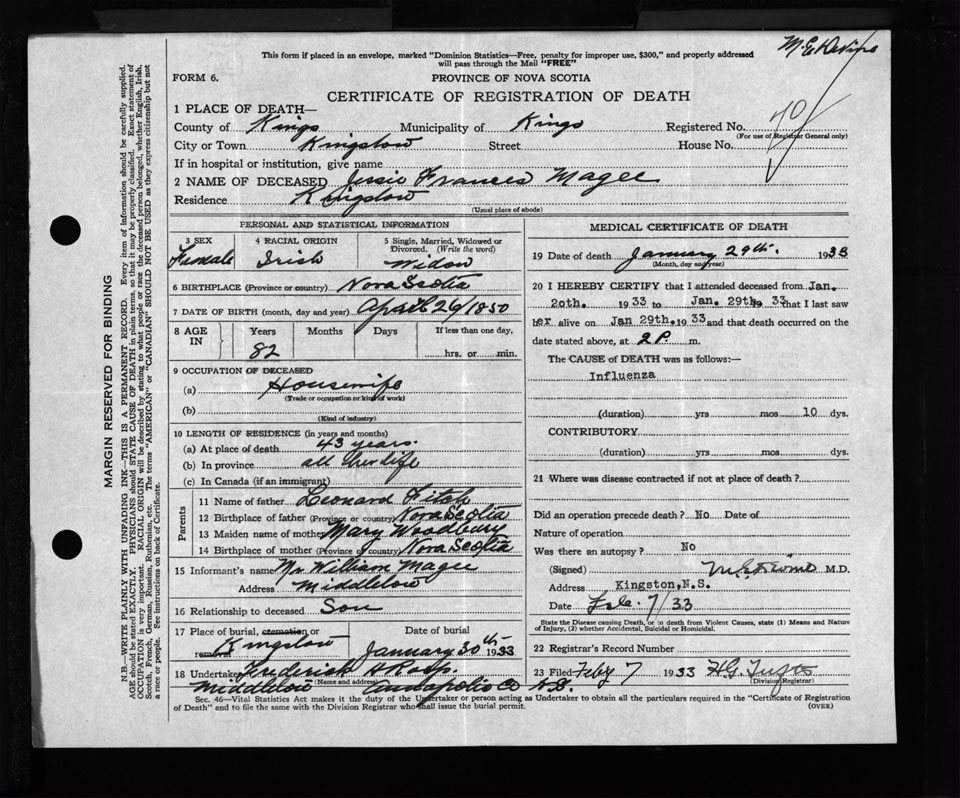 This form if placed in an envelope, marked "Dominion Statistics—Free, penalty for improper use, $300," and properly addressed
will pass through the Mail "FREE"
FORM 6.
PROVINCE OF NOVA SCOTIA
CERTIFICATE OF REGISTRATION OF DEATH
1 PLACE OF DEATH—
County of Kings Municipality of Kings Registered No. 40
(For use of Registrar General only)
City or Town Kingston Street House No.
If in hospital or institution, give name
2 NAME OF DECEASED Jessie Frances Magee
Residence Kingston
(Usual place of abode)
PERSONAL AND STATISTICAL INFORMATION
3 SEX 4 RACIAL ORIGIN 5 Single, Married, Widowed or
Divorced. (Write the word)
Female Irish Widow
6 BIRTHPLACE (Province or country) Nova Scotia
7 DATE OF BIRTH (month, day and year) April 26/1850
8 AGE IN Years Months Days If less than one day,
82 hrs. or min.
9 OCCUPATION OF DECEASED
(a) Housewife
(Trade or occupation or kind of work)
(b)
(Kind of industry)
10 LENGTH OF RESIDENCE (in years and months)
(a) At place of death 43 years.
(b) In province all her life
(c) In Canada (if an immigrant)
Parents
11 Name of father Leonard Fitch
12 Birthplace of father (Province or country) Nova Scotia
13 Maiden name of mother Mary Woodbury
14 Birthplace of mother (Province or country) Nova Scotia
15 Informant's name Mr William Magee
Address Middleton
16 Relationship to deceased Son
17 Place of burial, cremation or removal Date of burial
Kingston January 30th 1933
18 Undertaker Frederick H Ross.
(Name and address)
Middleton Annapolis Co N.S.
MEDICAL CERTIFICATE OF DEATH
19 Date of death January 29th. 1933
(Month, day and year)
20 I HEREBY CERTIFY that I attended deceased from Jan.
20th. 1933 to Jan. 29th, 33 that I last saw
her alive on Jan 29th. 1933 and that death occurred on the
date stated above, at 2 P. m.
The CAUSE of DEATH was as follows:—
Influenza
(duration) yrs mos 10 dys.
CONTRIBUTORY
(duration) yrs. mos. dys.
21 Where was disease contracted if not at place of death?
Did an operation precede death? No Date of
Nature of operation
Was there an autopsy? No
(Signed) M.D.
Address Kingston,N.S.
Date Feb. 7/33
State the Disease causing Death, or in death from Violent Causes, state (1) Means and Nature
of Injury, (2) whether Accidental, Suicidal or Homicidal.
22 Registrar's Record Number
23 Filed Feby 7 1933 H.G. Tufts
(Division Registrar)
Sec. 46—Vital Statistics Act makes it the duty of the Undertaker or person acting as Undertaker to obtain all the particulars required in the "Certificate of Registration
of Death" and to file the same with the Division Registrar who shall issue the burial permit. (OVER)
MARGIN RESERVED FOR BINDING
N.B.—WRITE PLAINLY WITH UNFADING INK—THIS IS A PERMANENT RECORD. Every item of information should be carefully supplied.
AGE should be stated EXACTLY. PHYSICIANS should STATE CAUSE OF DEATH in plain terms, so that it may be properly classified. Exact statement of
OCCUPATION is very important. RACIAL ORIGIN will be described by stating to what people or race the deceased person belonged, whether English, Irish,
Scotch, French, German, Russian, Ruthenian, etc. The terms "AMERICAN" or "CANADIAN" SHOULD NOT BE USED as they express citizenship but not
a race or people. See instructions on back of Certificate.